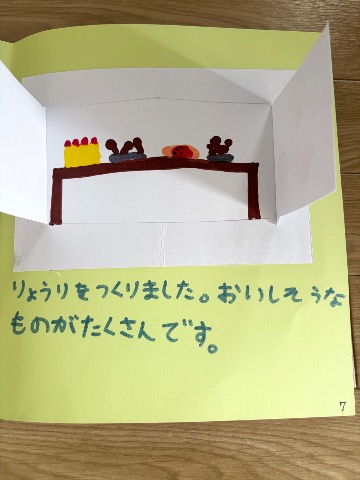 りょうりをつくりました。おいしそうな
ものがたくさんです。
7